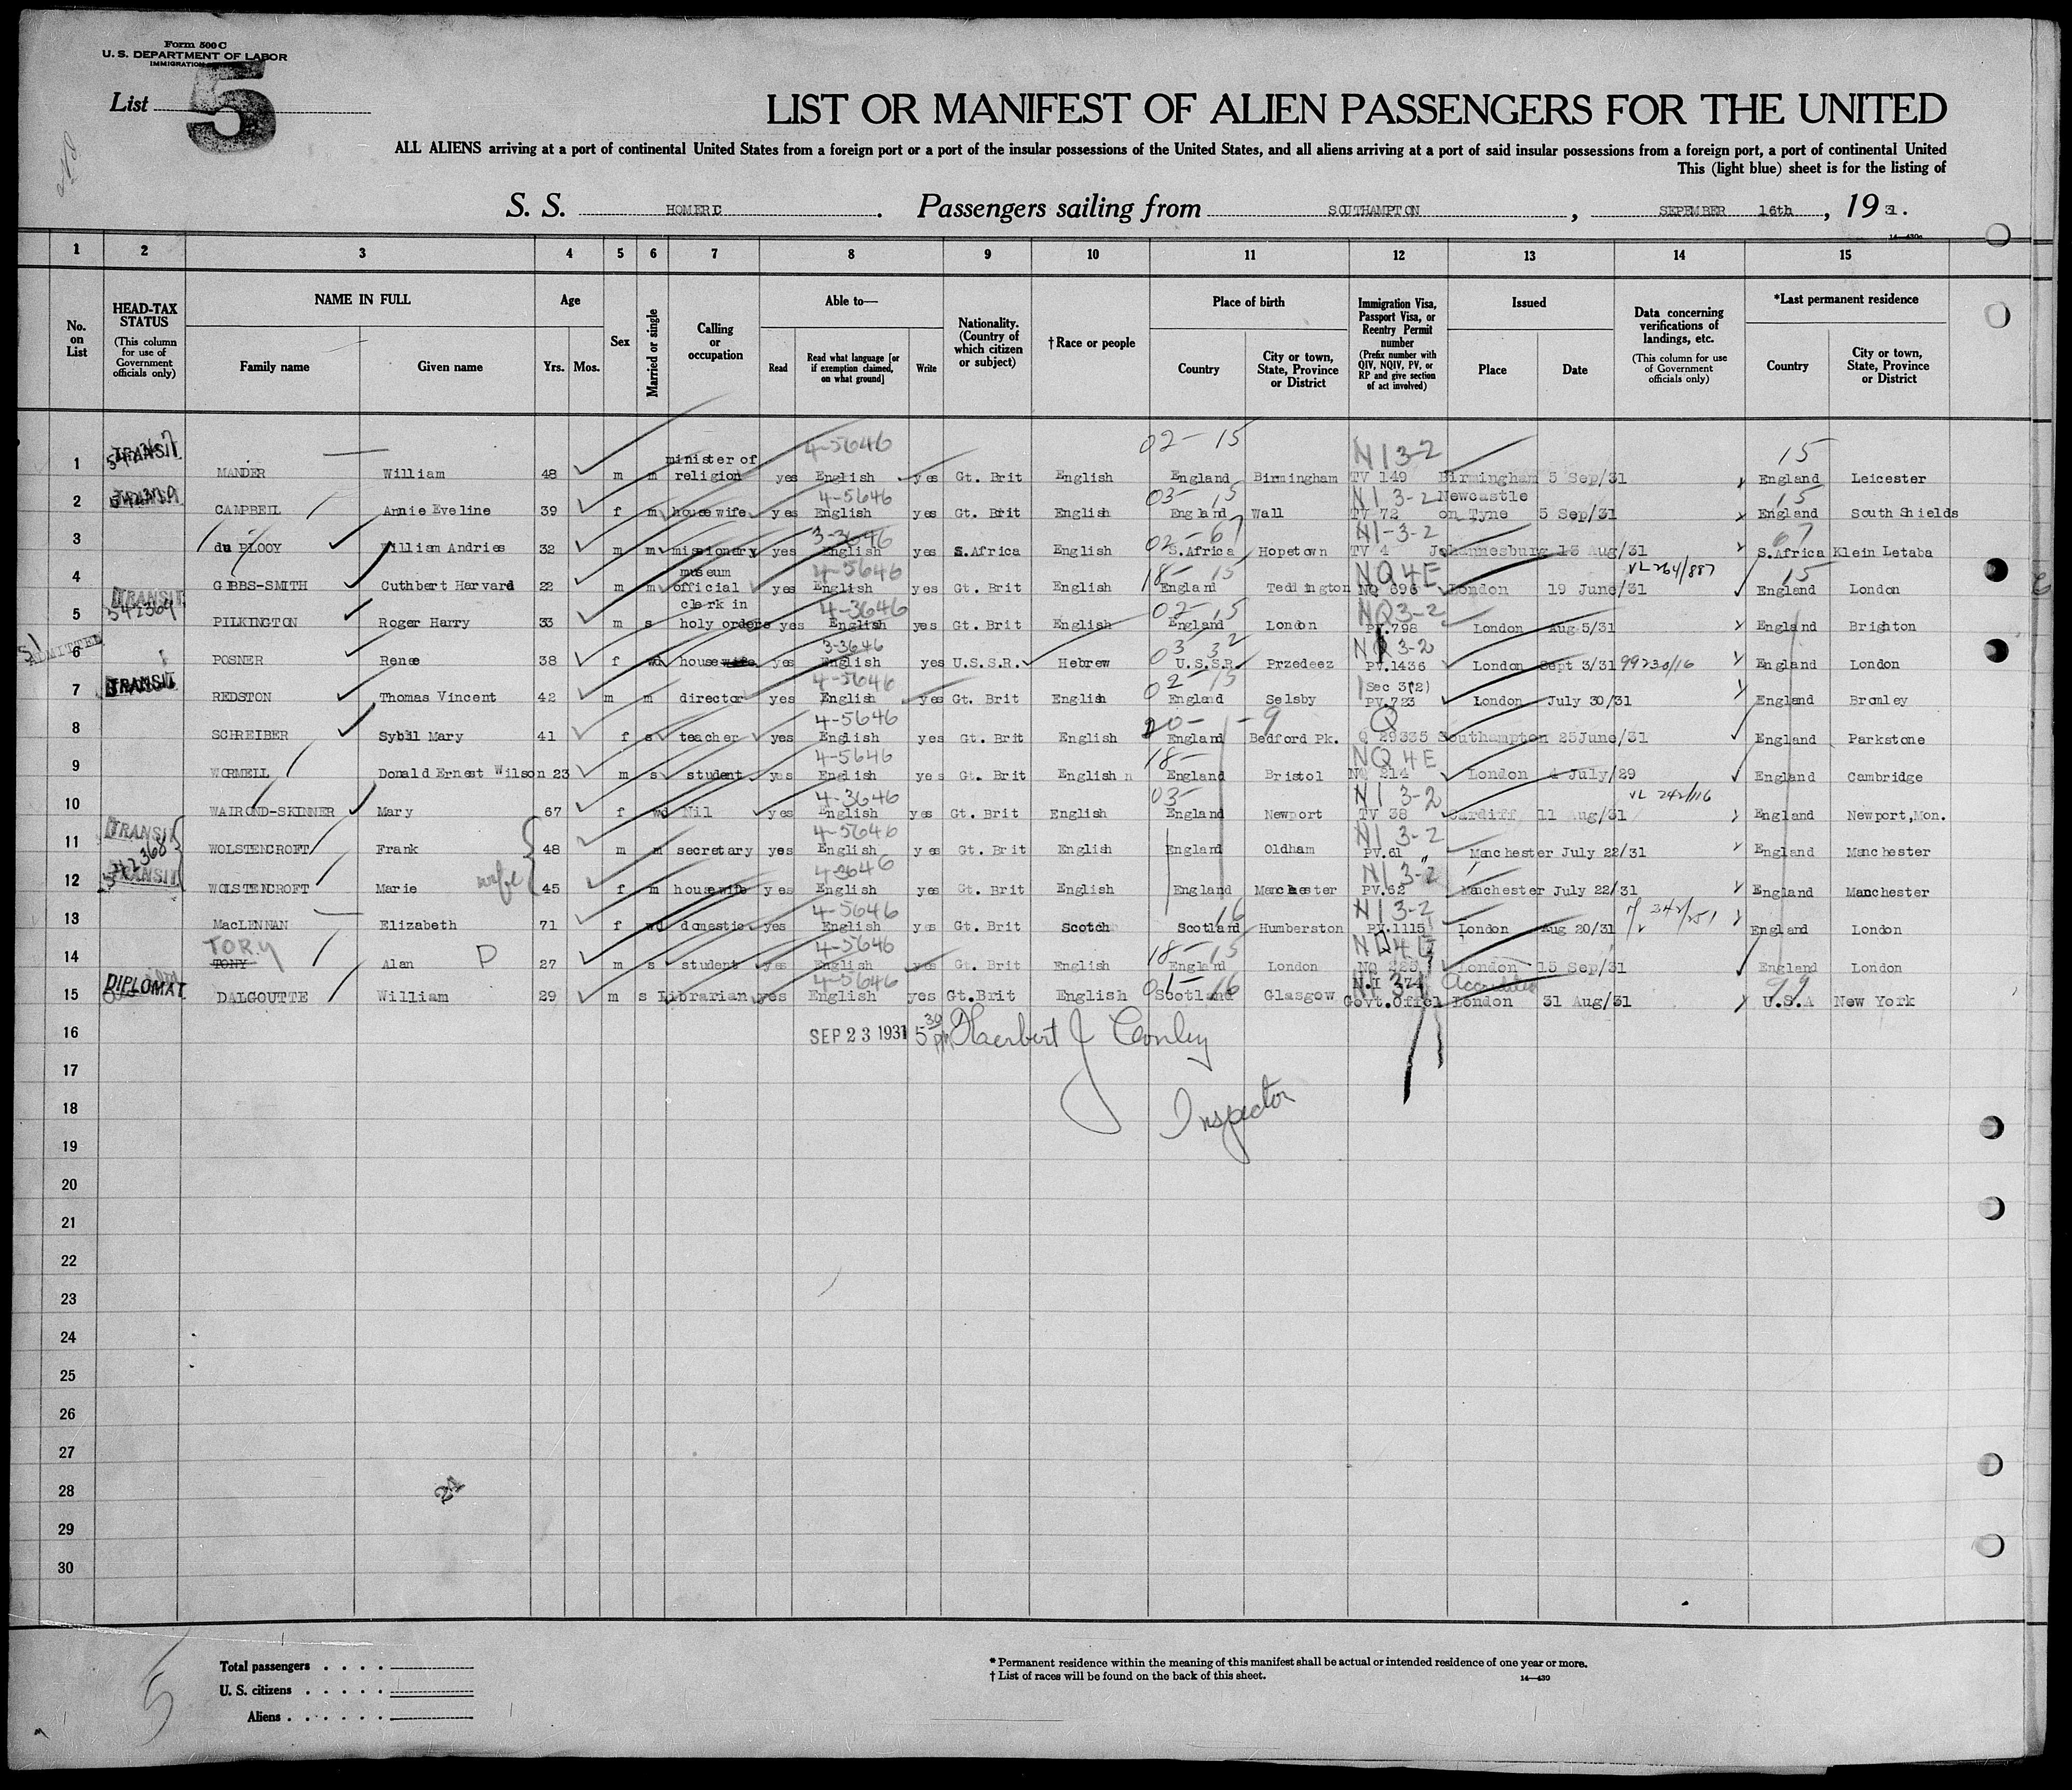 Form 500 C
U. S. DEPARTMENT OF LABOR
IMMIGRATION
List 5
LIST OR MANIFEST OF ALIEN PASSENGERS FOR THE UNITED
ALL ALIENS arriving at a port of continental United States from a foreign port or a port of the insular possessions of the United States, and all aliens arriving at a port of said insular possessions from a foreign port, a port of continental United
This (light blue) sheet is for the listing of
S. S. HOMERIC. Passengers sailing from SOUTHAMPTON, SEPEMBER 16th, 1931.
14—430a
1 2 3 4 5 6 7 8 9 10 11 12 13 14 15
No. on List
HEAD-TAX STATUS
(This column for use of Government officials only)
NAME IN FULL
Family name
Given name
Age
Yrs.
Mos.
Sex
Married or single
Calling or occupation
Able to—
Read
Read what language [or if exemption claimed, on what ground]
Write
Nationality. (Country of which citizen or subject)
†Race or people
Place of birth
Country
City or town, State, Province or District
Immigration Visa, Passport Visa, or Reentry Permit number
(Prefix number with QIV, NQIV, PV, or RP and give section of act involved)
Issued
Place
Date
Data concerning verifications of landings, etc.
(This column for use of Government officials only)
*Last permanent residence
Country
City or town, State, Province or District
TRANSIT 4-5646 02-15 N I 3-2 15
1 MANDER William 48 m m minister of religion yes English yes Gt. Brit English England Birmingham TV 149 Birmingham 5 Sep/31 England Leicester
4-5646 03- 15 N I 3-2 15
2 CAMPBELL Annie Eveline 39 f m housewife yes English yes Gt. Brit English England Wall TV 72 Newcastle on Tyne 5 Sep/31 England South Shields
3-3646 02-67 N I-3-2 67
3 du PLOOY William Andries 32 m m missionary yes English yes S.Africa English S.Africa Hopetown TV 4 Johannesburg 13 Aug/31 S.Africa Klein Letaba
4-5646 18- 15 NQ4E VL 264/887 15
4 GIBBS-SMITH Cuthbert Harvard 22 m m museum official yes English yes Gt. Brit English England Teddington NQ 696 London 19 June/31 England London
TRANSIT 542369 4-3646 02-15 NQ3-2
5 PILKINGTON Roger Harry 33 m s clerk in holy orders yes English yes Gt. Brit English England London PV.798 London Aug 5/31 England Brighton
ADMITTED 3-3646 03 32 NQ 3-2
6 POSNER Renee 38 f wd housewife yes English yes U.S.S.R. Hebrew U.S.S.R. Przedeez PV.1436 London Sept 3/31 99230/16 England London
TRANSIT 4-5646 02-15 Sec 3(2)
7 REDSTON Thomas Vincent 42 m m director yes English yes Gt. Brit English England Selsby PV.723 London July 30/31 England Bromley
4-5646 20- -9 Q
8 SCHREIBER Sybil Mary 41 f s teacher yes English yes Gt. Brit English England Bedford Pk. Q 29335 Southampton 25June/31 England Parkstone
4-5646 18- NQ4E
9 WORMELL Donald Ernest Wilson 23 m s student yes English yes Gt. Brit English England Bristol NQ 214 London 4 July/29 England Cambridge
4-3646 03- N I 3-2 VL 242/116
10 WAIROND-SKINNER Mary 67 f wd Nil yes English yes Gt. Brit English England Newport TV 38 Cardiff 11 Aug/31 England Newport,Mon.
TRANSIT 4-5646 N I 3-2
11 WOLSTENCROFT Frank 48 m m secretary yes English yes Gt. Brit English England Oldham PV.61 Manchester July 22/31 England Manchester
542368 TRANSIT wife 4-3646 N I 3-2
12 WOLSTENCROFT Marie 45 f m housewife yes English yes Gt. Brit English England Manchester PV.62 Manchester July 22/31 England Manchester
4-5646 16 N I 3-2
13 MacLENNAN Elizabeth 71 f wd domestic yes English yes Gt. Brit Scotch Scotland Humberston PV.1115 London Aug 20/31 England London
TORY 4-5646 18-15
14 TONY Alan D 27 m s student yes English yes Gt. Brit English England London NQ London 15 Sep/31 England London
DIPLOMAT 4-5646 01-16 N.I 99
15 DALGOUTTE William 29 m s Librarian yes English yes Gt.Brit English Scotland Glasgow Govt.Offcl London 31 Aug/31 U.S.A New York
16 SEP 23 1931 5 30 PM Herbert J Conley
17
18 Inspector
19
20
21
22
23
24
25
26
27
28
29
30
Total passengers
U. S. citizens
Aliens
5
* Permanent residence within the meaning of this manifest shall be actual or intended residence of one year or more.
† List of races will be found on the back of this sheet.
14—430